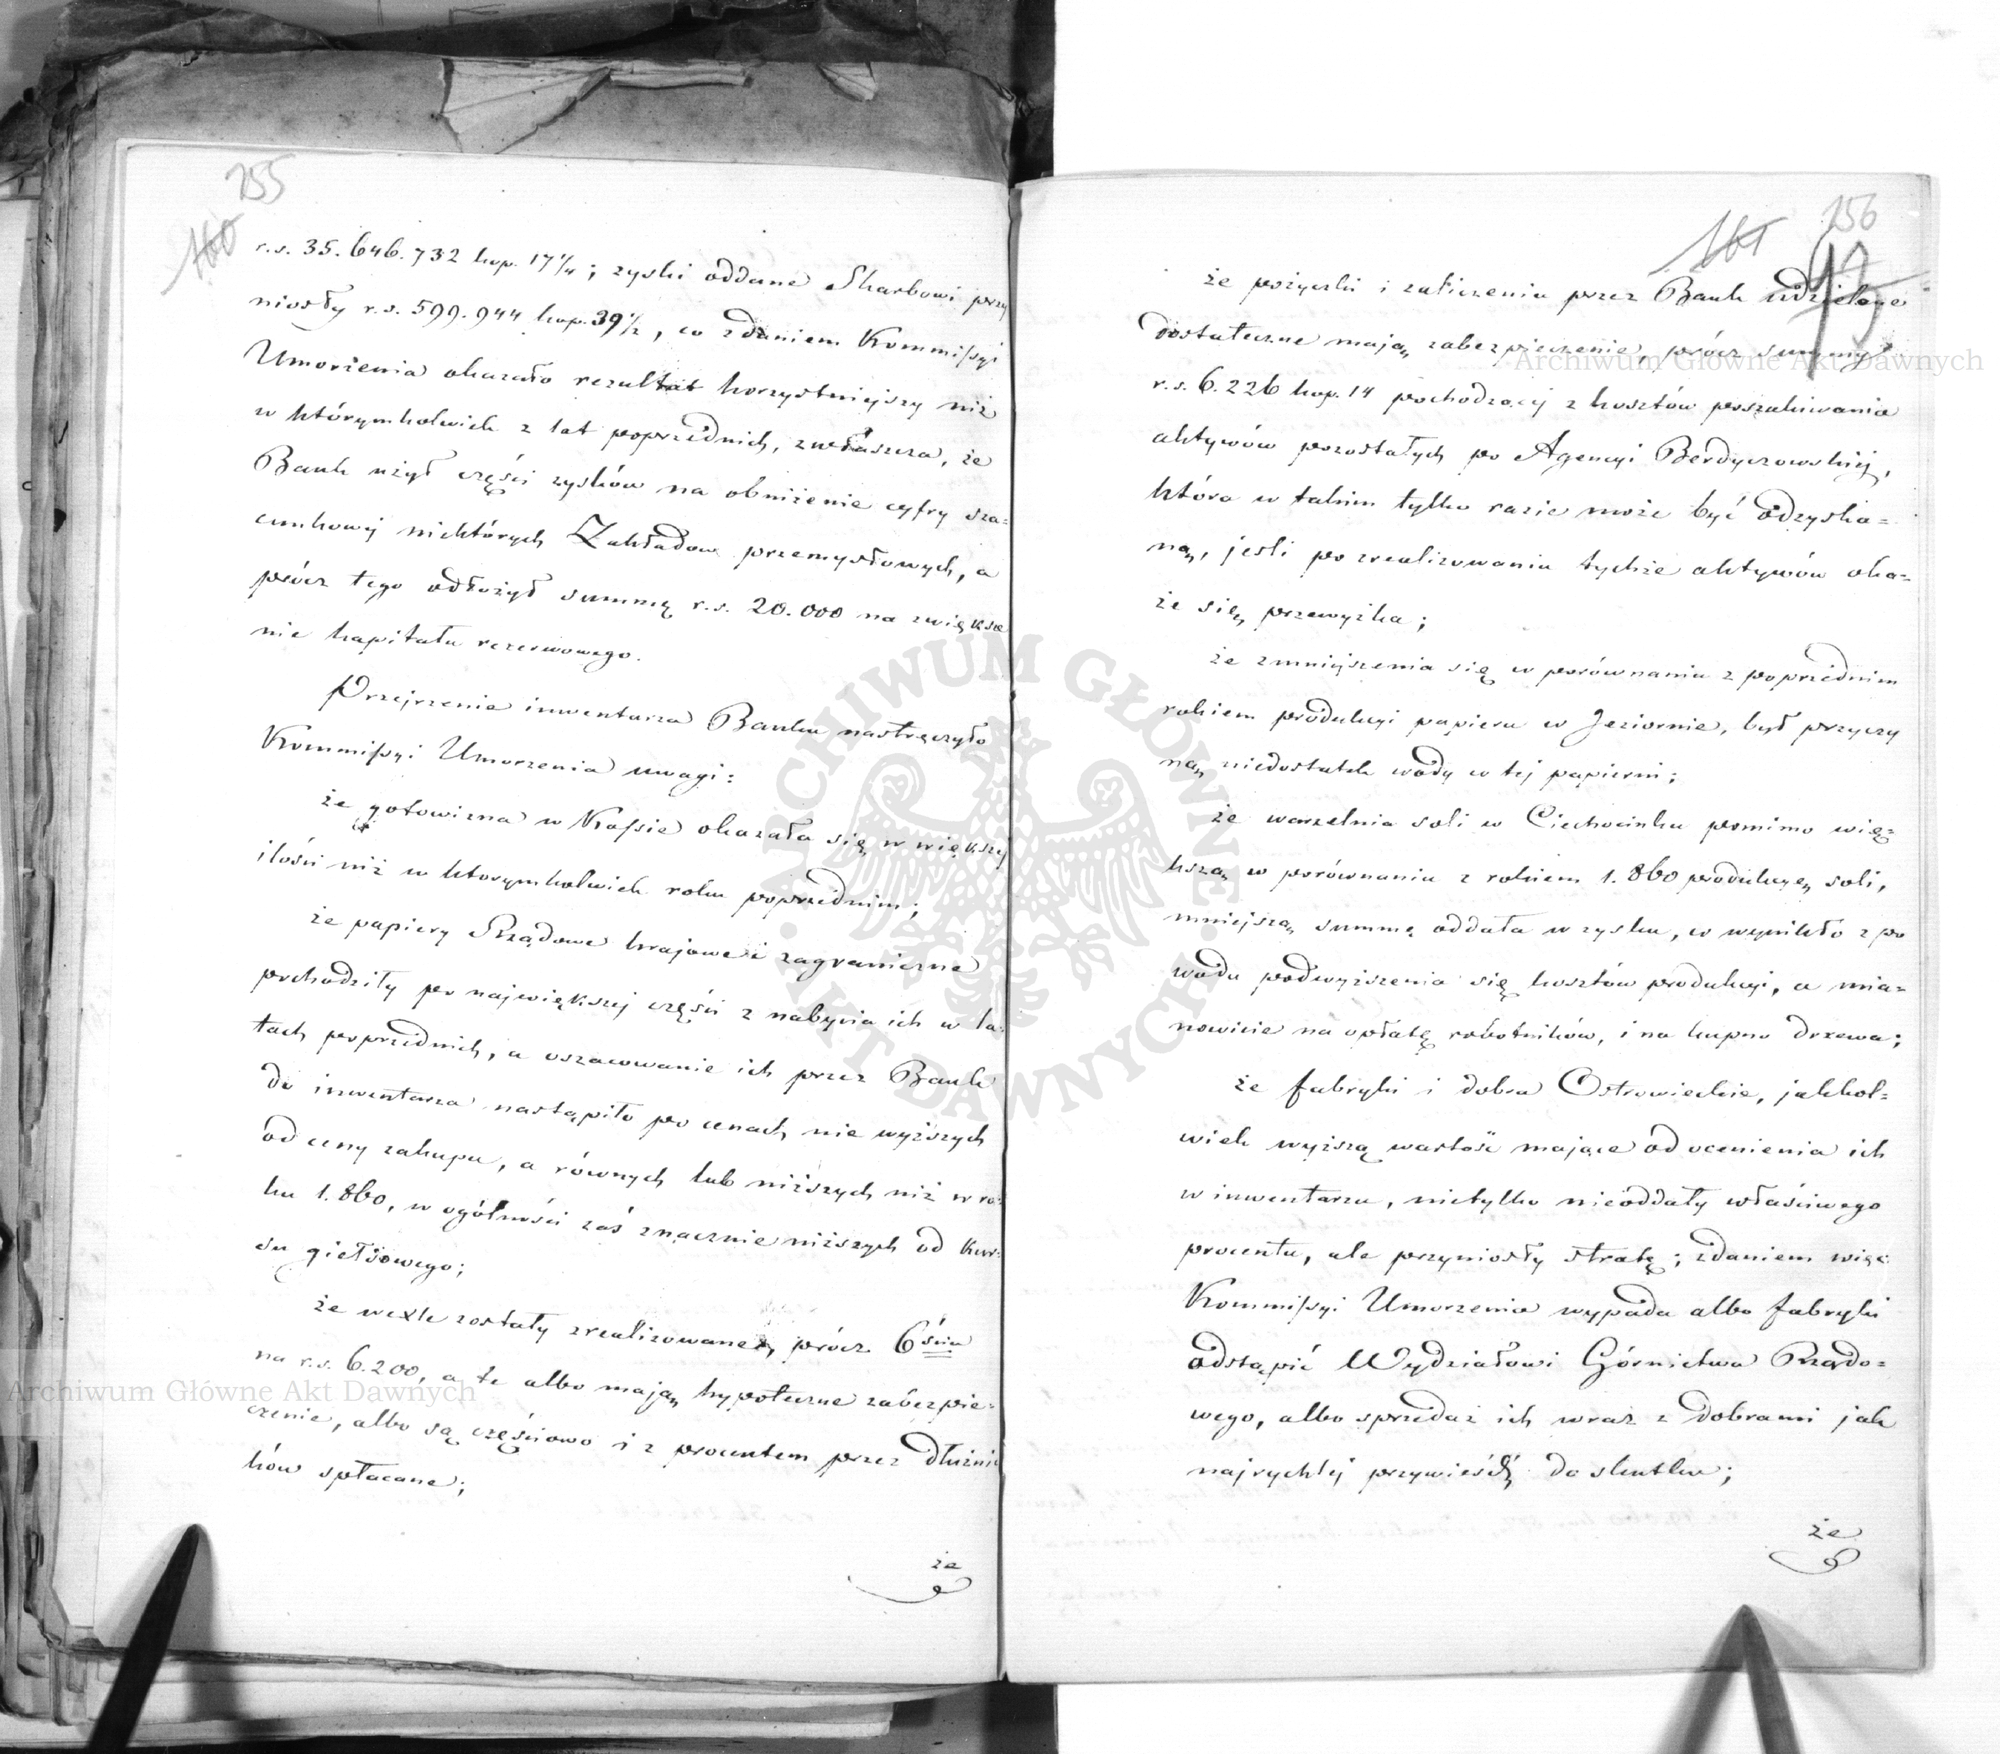 255
160
r.s. 35.646.732 kop. 17¼; zyski oddane Skarbowi przy
niosły r.s. 599.944 kop. 39½, co zdaniem Kommissyi
Umorzenia okazało rezultat korzystniejszy niż
w którymkolwiek z lat poprzednich, zwłaszcza, że
Bank użył części zysków na obniżenie cyfry sza=
cunkowej niektórych Zakładow przemysłowych, a
prócz tego odłożył summę r.s. 20.000 na zwiększe
nie kapitału rezerwowego.
Przejrzenie inwentarza Banku nastręczyło
Kommissyi Umorzenia uwagi:
że gotowizna w Kassie okazała się w większej
ilości niż w ktorymkolwiek roku poprzednim;
że papiery Rządowe krajowe i zagraniczne
pochodziły po największej części z nabycia ich w la=
tach poprzednich, a oszacowanie ich przez Bank
do inwentarza nastąpiło po cenach nie wyższych
od ceny zakupu, a równych lub niższych niż w ro=
ku 1.860, w ogólności zaś znacznie niższych od kur=
su giełdowego;
że wexle zostały zrealizowane, prócz 6ściu
na r.s. 6.200, a te albo mają hypoteczne zabezpie=
czenie, albo są częściowo i z procentem przez dłużni
ków spłacane;
że
256
161
93
że pożyczki i zaliczenia przez Bank udzielone
dostateczne mają zabezpieczenie, prócz summy
r.s. 6.226 kop. 14 pochodzącej z kosztów poszukiwania
aktywów pozostałych po Agencyi Berdyczowskiej,
która w takim tylko razie może być odzyska=
ną, jeśli po zrealizowaniu tychże aktywów oka=
że się przewyżka;
że zmniejszenia się w porównaniu z poprzednim
rokiem produkcyi papieru w Jeziornie, był przyczy
ną niedostatek wody w tej papierni;
że warzelnia soli w Ciechocinku pomimo wię=
kszą w porównaniu z rokiem 1.860 produkcyę soli,
mniejszą summę oddała w zysku, co wynikło z po
wodu podwyższenia się kosztów produkcyi, a mia=
nowicie na opłatę robotników, i na kupno drzewa;
że fabryki i dobra Ostrowieckie, jakkol=
wiek wyższą wartość mające od ocenienia ich
w inwentarzu, nietylko nieoddały właściwego
procentu, ale przyniosły stratę; zdaniem więc
Kommissyi Umorzenia wypada albo fabryki
odstąpić Wydziałowi Górnictwa Rządo=
wego, albo sprzedaż ich wraz z dobrami jak
najrychlej przywieść do skutku;
że
Archiwum Główne Akt Dawnych
Archiwum Główne Akt Dawnych
ARCHIWUM GŁÓWNE · AKT DAWNYCH ·